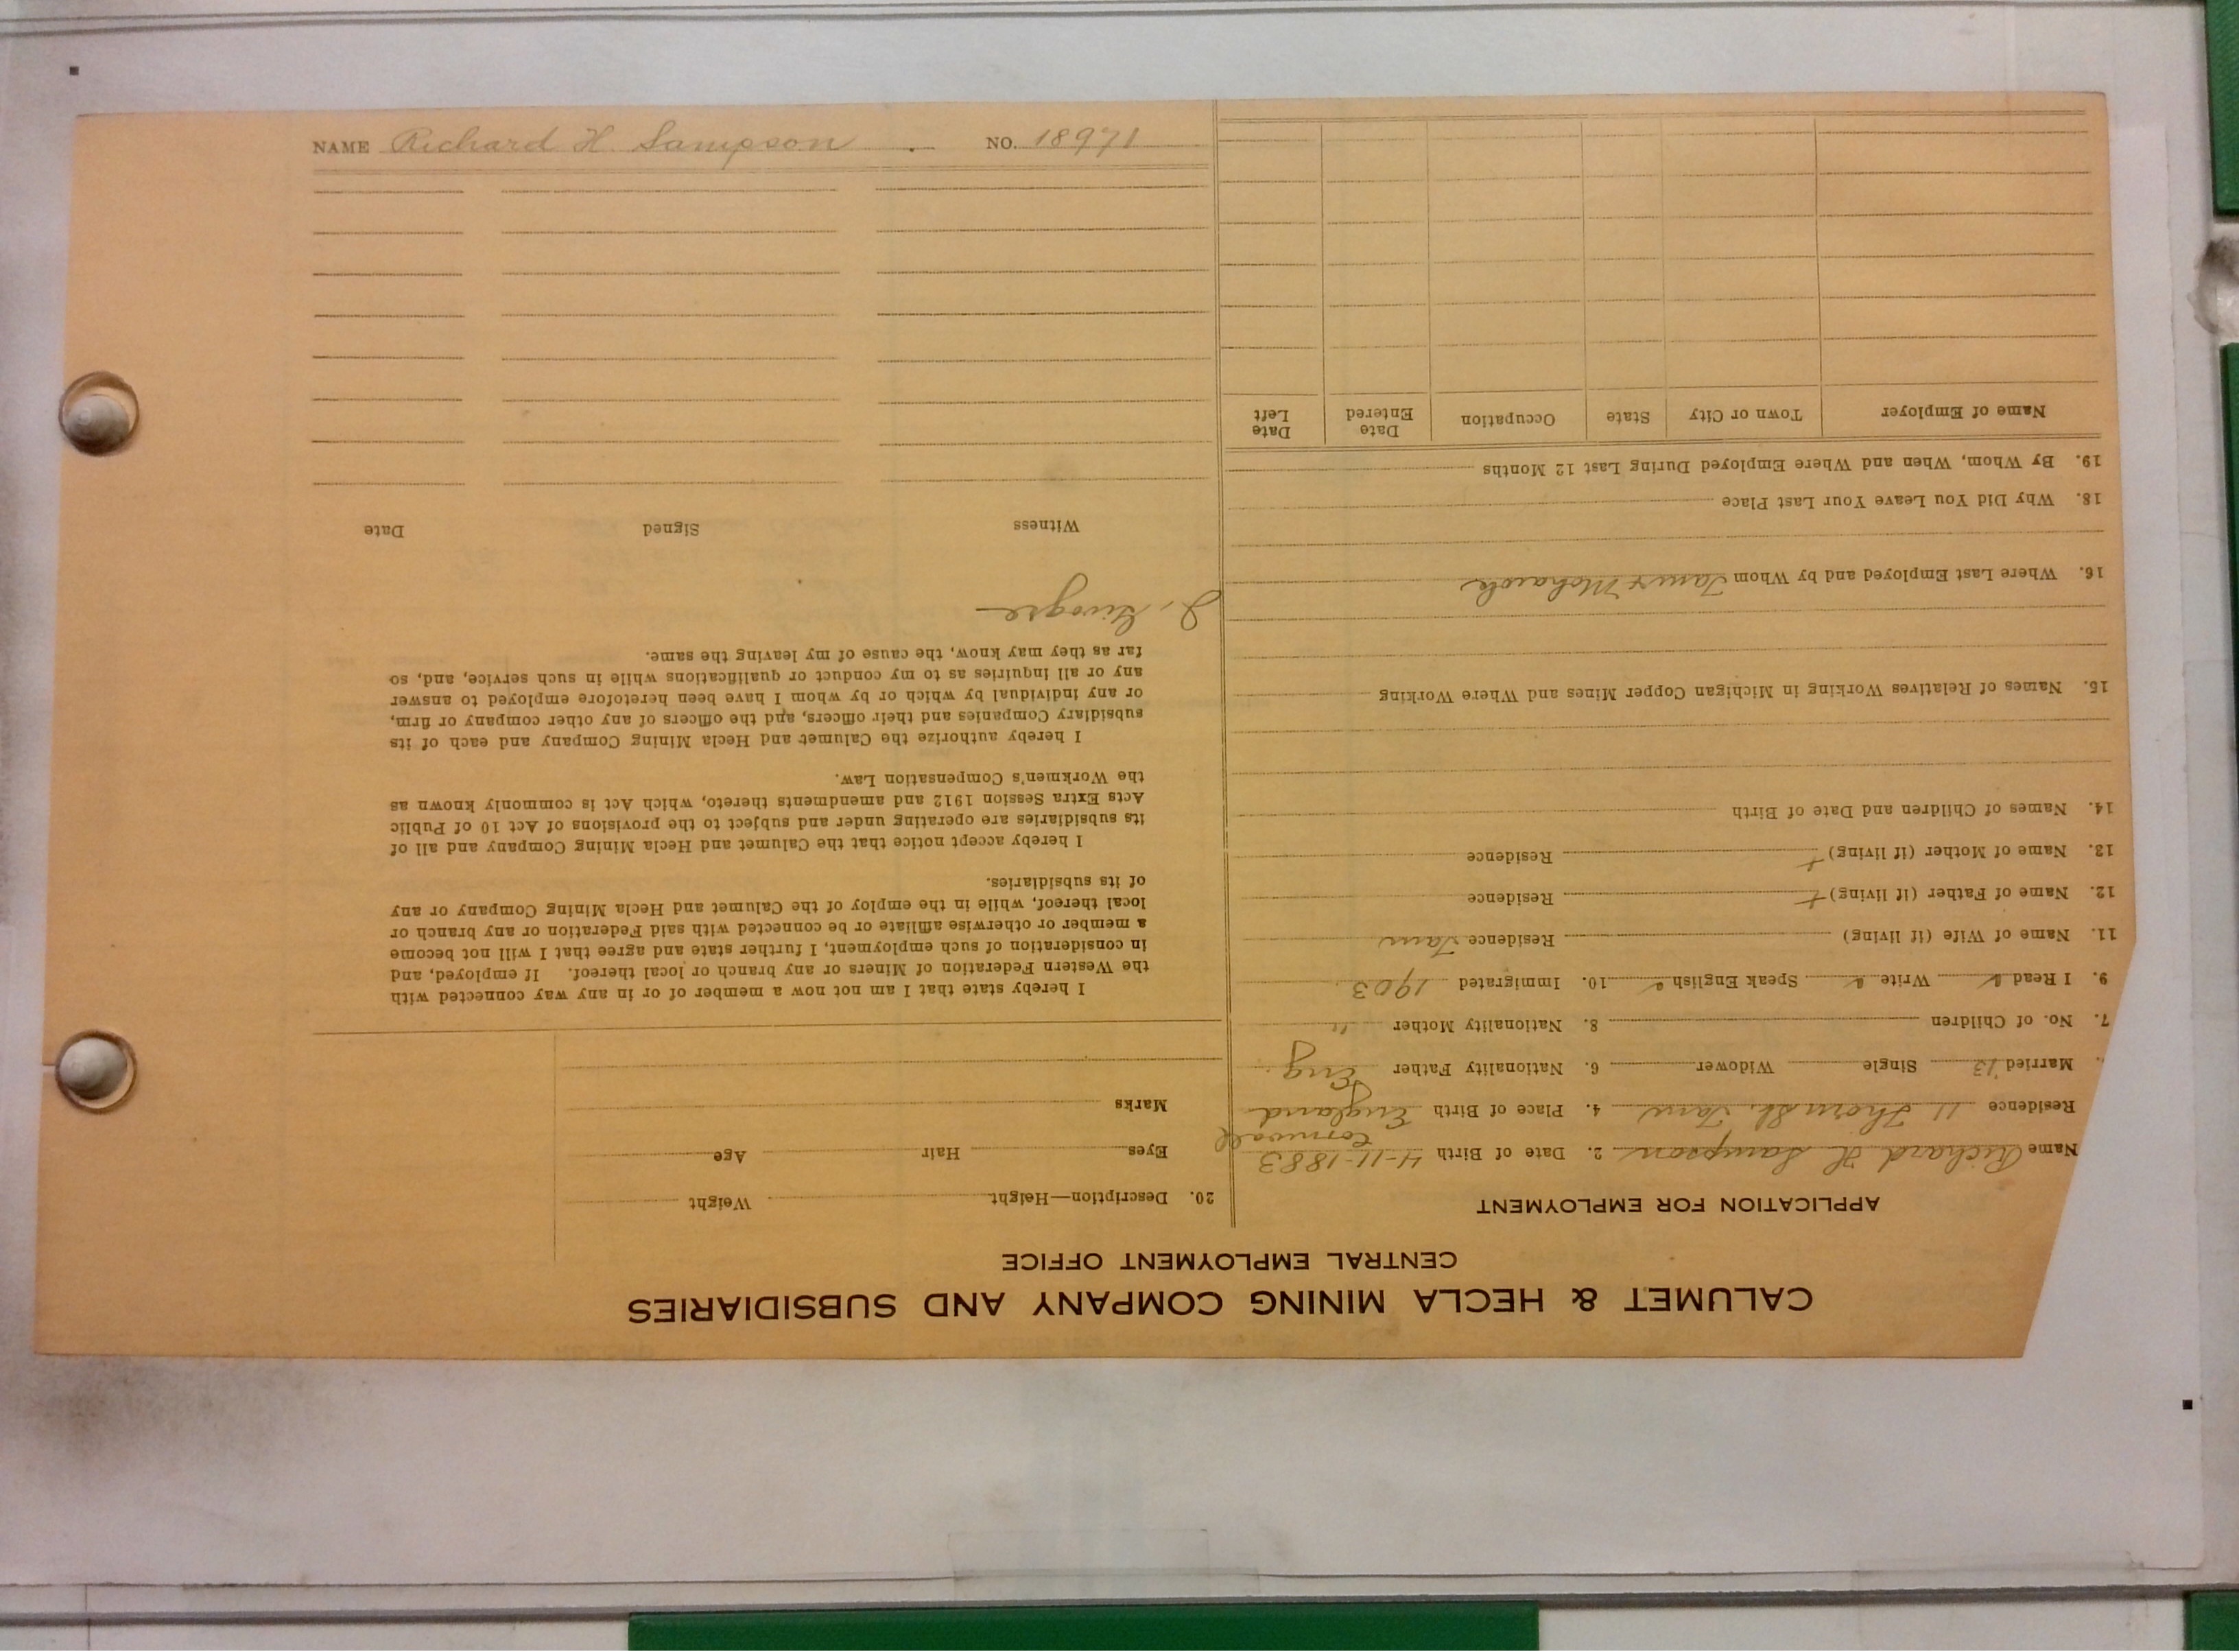 NAME Richard H. Sampson NO. 18971
CALUMET & HECLA MINING COMPANY AND SUBSIDIARIES
CENTRAL EMPLOYMENT OFFICE
APPLICATION FOR EMPLOYMENT
Name Richard H Sampson 2. Date of Birth 4-11-1883
Cornwall
Residence 11 Thorn St. Tam 4. Place of Birth England
Married '13 Single Widower 6. Nationality Father Eng.
7. No. of Children 8. Nationality Mother "
9. I Read Write Speak English 10. Immigrated 1903
11. Name of Wife (if living) Residence Tam
12. Name of Father (if living) Residence
13. Name of Mother (if living) Residence
14. Names of Children and Date of Birth
15. Names of Relatives Working in Michigan Copper Mines and Where Working
16. Where Last Employed and by Whom Mohawk
18. Why Did You Leave Your Last Place
19. By Whom, When and Where Employed During Last 12 Months
Name of Employer Town or City State Occupation Date Entered Date Left
20. Description—Height Weight
Eyes Hair Age
Marks
I hereby state that I am not now a member of or in any way connected with
the Western Federation of Miners or any branch or local thereof. If employed, and
in consideration of such employment, I further state and agree that I will not become
a member or otherwise affiliate or be connected with said Federation or any branch or
local thereof, while in the employ of the Calumet and Hecla Mining Company or any
of its subsidiaries.
I hereby accept notice that the Calumet and Hecla Mining Company and all of
its subsidiaries are operating under and subject to the provisions of Act 10 of Public
Acts Extra Session 1912 and amendments thereto, which Act is commonly known as
the Workmen's Compensation Law.
I hereby authorize the Calumet and Hecla Mining Company and each of its
subsidiary Companies and their officers, and the officers of any other company or firm,
or any individual by which or by whom I have been heretofore employed to answer
any or all inquiries as to my conduct or qualifications while in such service, and, so
far as they may know, the cause of my leaving the same.
Witness Signed Date